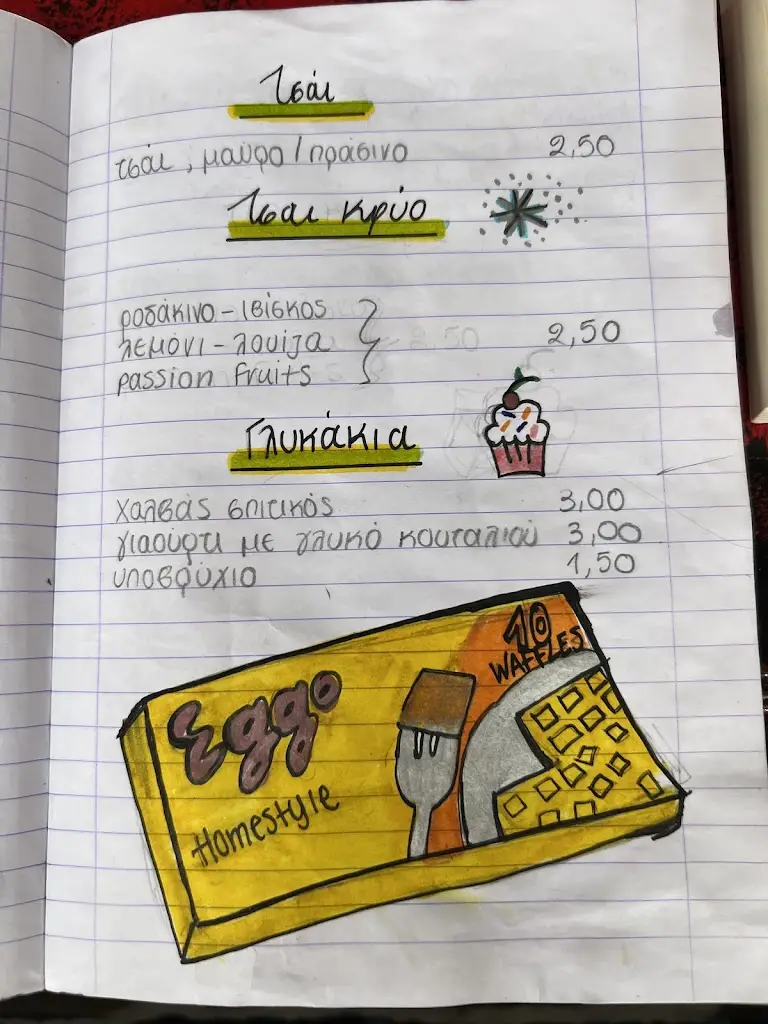 Τσάι
τσάι, μαύρο/πράσινο 2,50
Τσαι κρύο
ροδάκινο - ιβίσκος
λεμόνι - λουίζα 2,50
passion fruits
Γλυκάκια
χαλβάς σπιτικός 3,00
γιαούρτι με γλυκό κουταλιού 3,00
υποβρύχιο 1,50
10
WAFFLES
Eggo
Homestyle